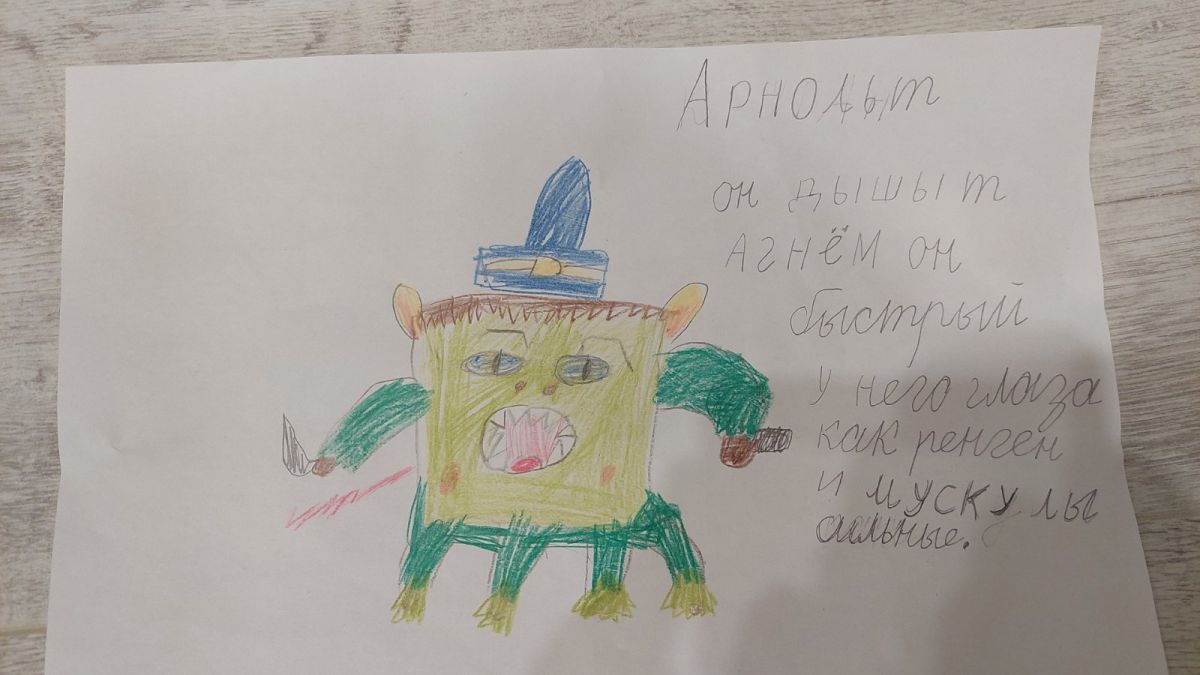 Арнольт
он дышыт
агнём он
быстрый
у него глаза
как ренген
и мускулы
сильные.